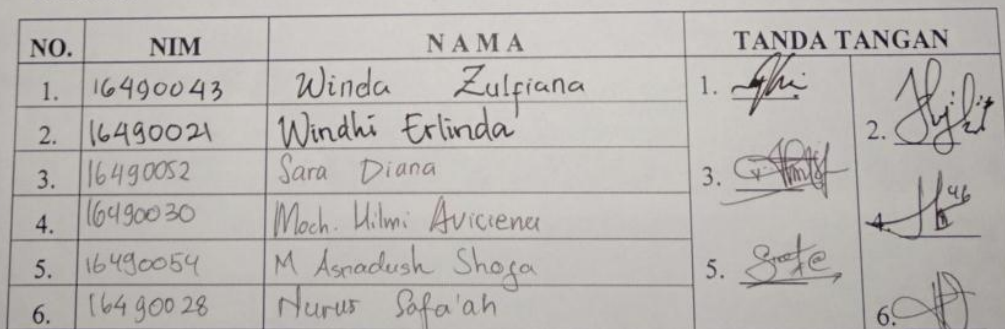 NO. NIM NAMA TANDA TANGAN
1. 16490043 Winda Zulfiana 1.
2. 16490021 Windhi Erlinda 2.
3. 16490052 Sara Diana 3.
4. 16490030 Moch. Hilmi Aviciena 4.
5. 16490054 M Asnadush Shofa 5.
6. 16490028 Nurus Safa'ah 6.